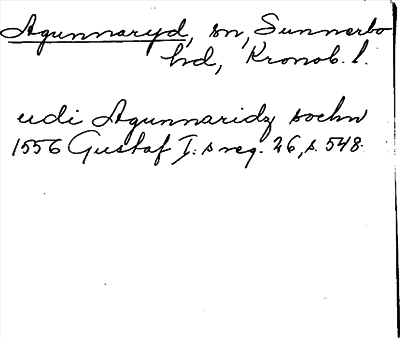 Agunnaryd, sn, Sunnerbo
hd, Kronob. l.
udi Agunnaridz sochn
1556 Gustaf I:s reg. 26, s. 548.